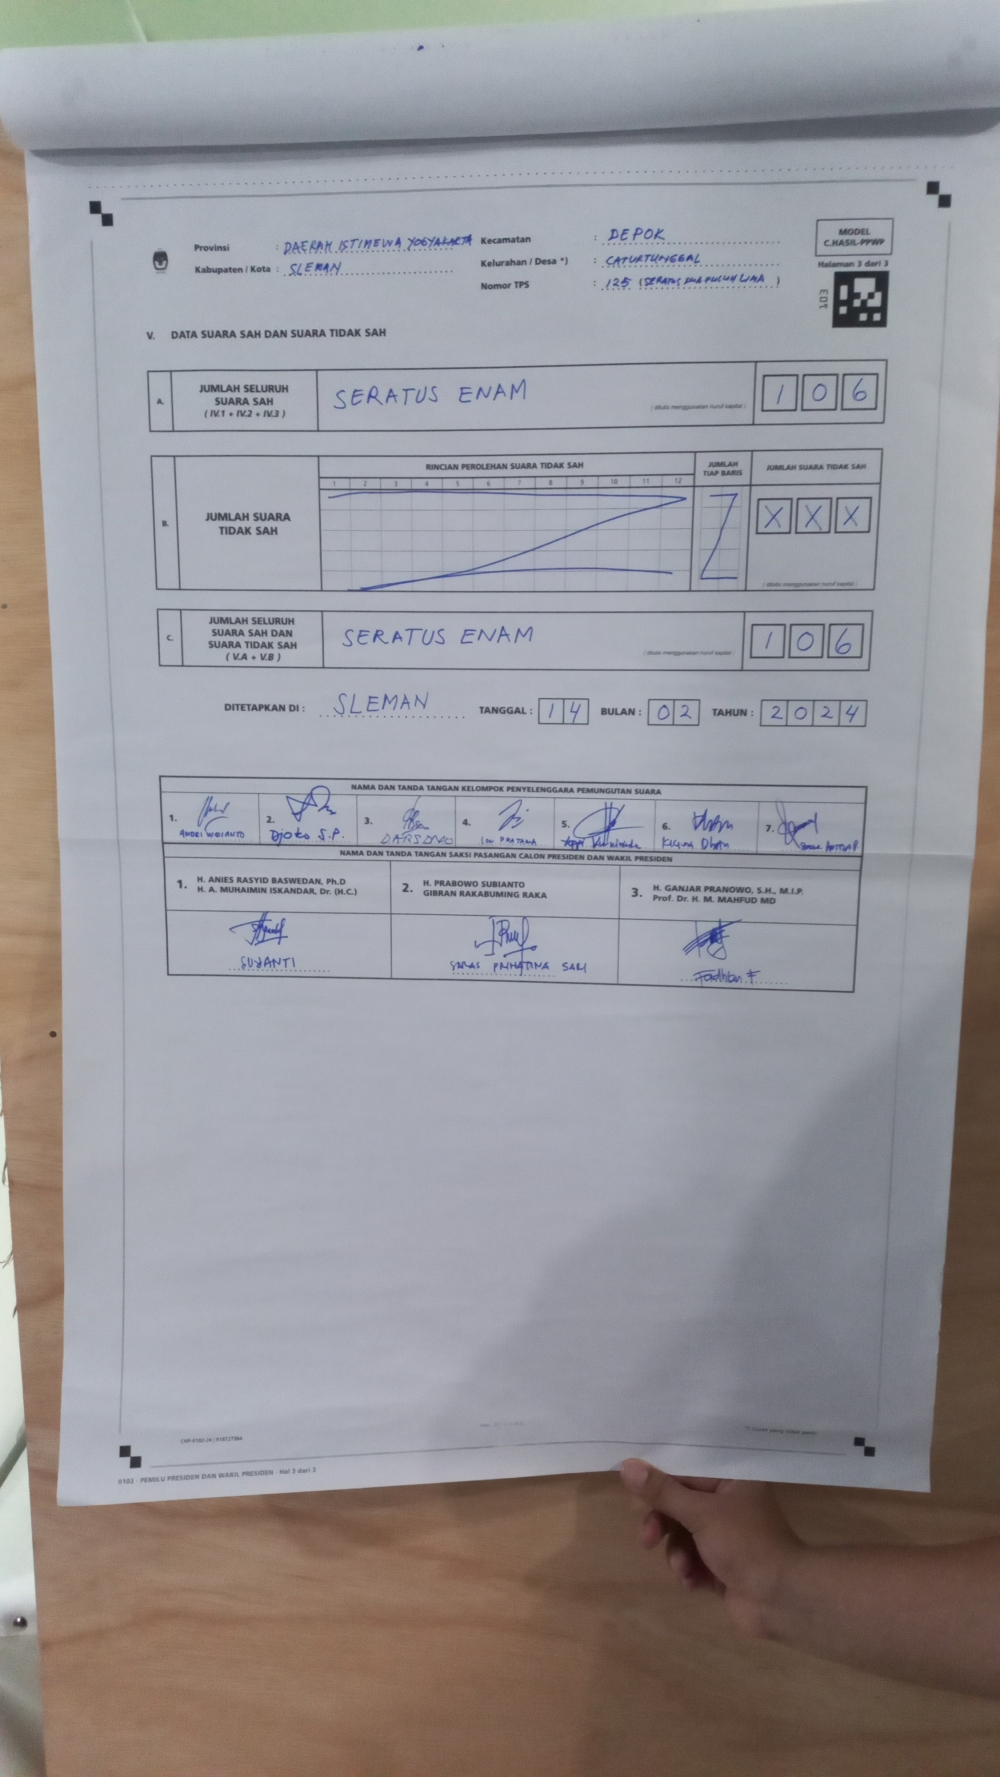 MODEL
C.HASIL-PPWP
Halaman 3 dari 3
103
Provinsi : DAERAH ISTIMEWA YOGYAKARTA
Kabupaten / Kota : SLEMAN
Kecamatan : DEPOK
Kelurahan / Desa *) : CATURTUNGGAL
Nomor TPS : 125 (SERATUS DUA PULUH LIMA)
V. DATA SUARA SAH DAN SUARA TIDAK SAH
A. JUMLAH SELURUH
SUARA SAH
( IV.1 + IV.2 + IV.3 )
SERATUS ENAM
( ditulis menggunakan huruf kapital )
1 0 6
B. JUMLAH SUARA
TIDAK SAH
RINCIAN PEROLEHAN SUARA TIDAK SAH
1 2 3 4 5 6 7 8 9 10 11 12
JUMLAH
TIAP BARIS
JUMLAH SUARA TIDAK SAH
X X X
( ditulis menggunakan huruf kapital )
C. JUMLAH SELURUH
SUARA SAH DAN
SUARA TIDAK SAH
( V.A + V.B )
SERATUS ENAM
( ditulis menggunakan huruf kapital )
1 0 6
DITETAPKAN DI : SLEMAN TANGGAL : 14 BULAN : 02 TAHUN : 2024
NAMA DAN TANDA TANGAN KELOMPOK PENYELENGGARA PEMUNGUTAN SUARA
1. 2. 3. 4. 5. 6. 7.
Djoko S.P. DARSONO PRATAMA
NAMA DAN TANDA TANGAN SAKSI PASANGAN CALON PRESIDEN DAN WAKIL PRESIDEN
1. H. ANIES RASYID BASWEDAN, Ph.D
H. A. MUHAIMIN ISKANDAR, Dr. (H.C.)
2. H. PRABOWO SUBIANTO
GIBRAN RAKABUMING RAKA
3. H. GANJAR PRANOWO, S.H., M.I.P.
Prof. Dr. H. M. MAHFUD MD
SUYANTI
SARI
Fadhlan F
0102 - PEMILU PRESIDEN DAN WAKIL PRESIDEN - Hal 3 dari 3